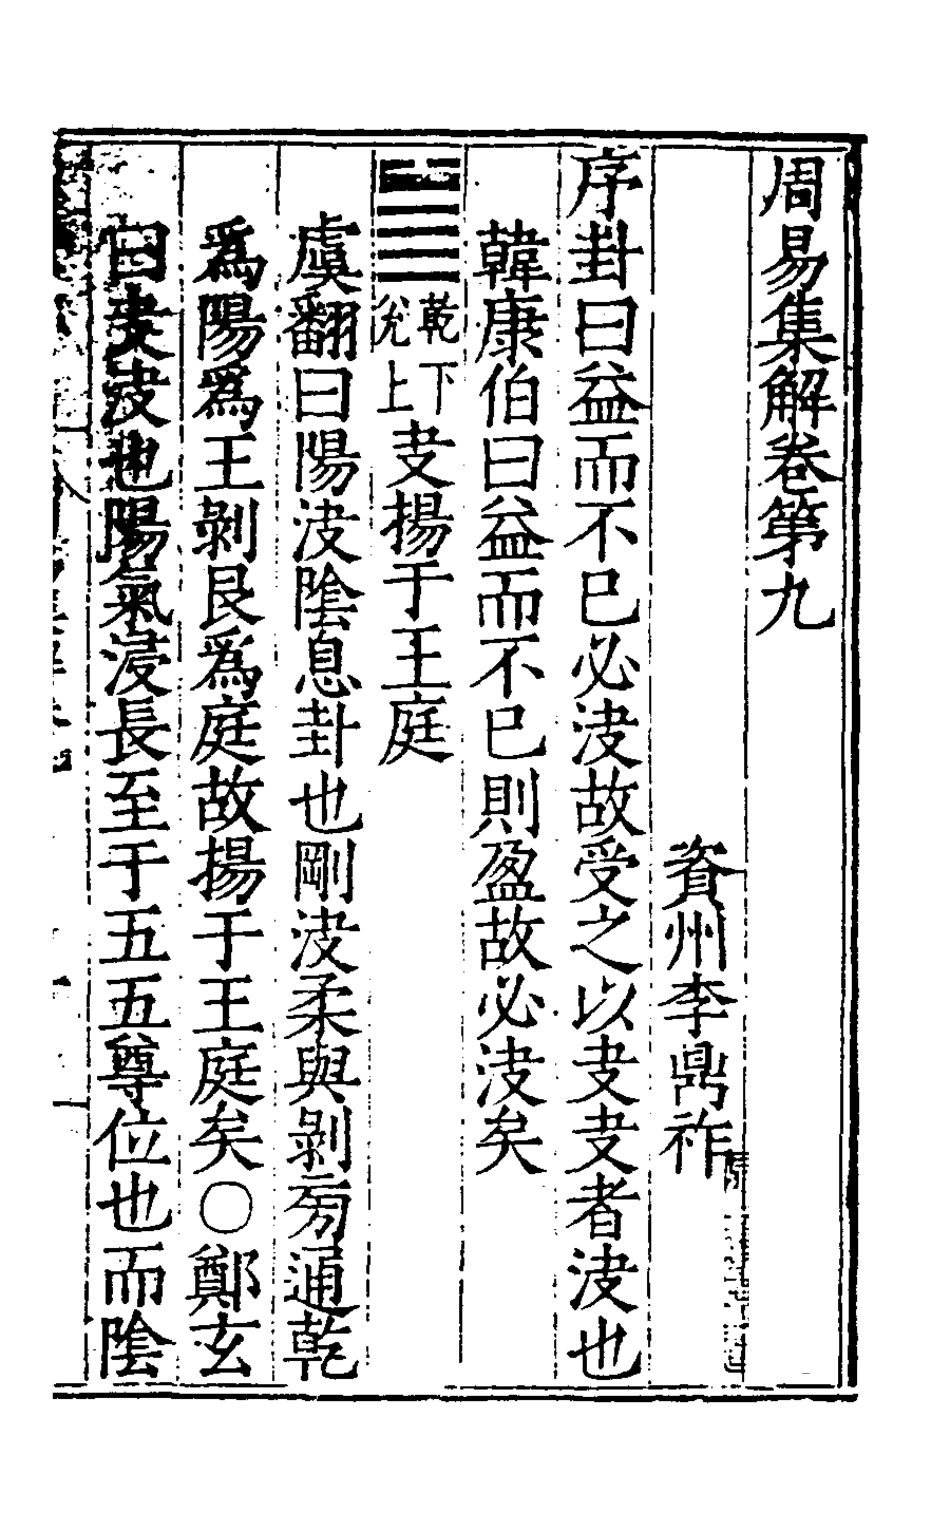 周易集解卷第九
資州李鼎祚
序卦曰益而不已必決故受之以夬夬者決也
韓康伯曰益而不已則盈故必決矣
䷪乾下兌上夬揚于王庭
虞翻曰陽決陰息卦也剛決柔與剝旁通乾
爲陽爲王剝艮爲庭故揚于王庭矣〇鄭玄
曰夬決也陽氣浸長至于五五尊位也而陰